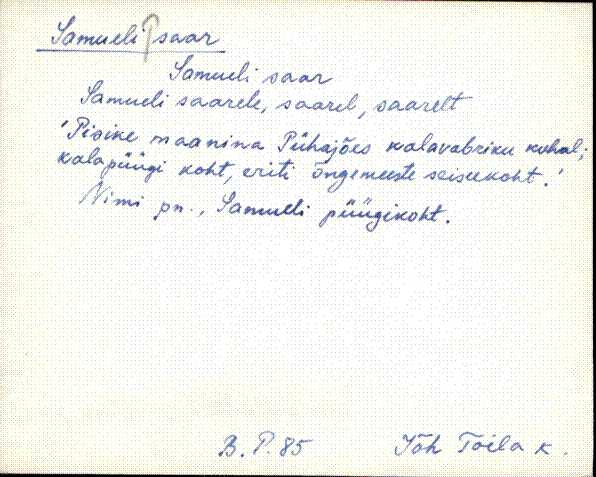 Samueli saar
Samueli saar
Samueli saarele, saarel, saarelt
'Pisike maanina Pühajões kalavabriku kohal;
kalapüügi koht, eriti õngemeeste seisukoht.'
Nimi pn., Samueli püügikoht.
B. P. 85 Jõh Toila k.